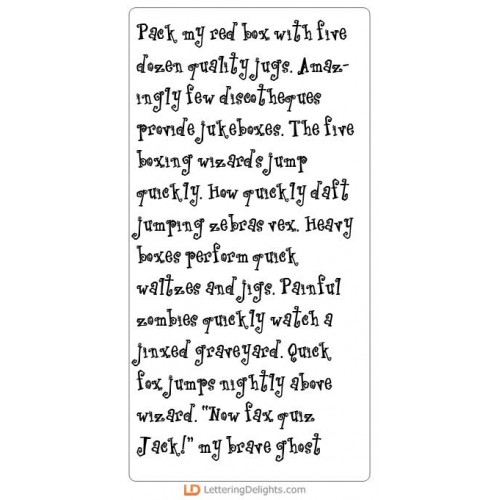 Pack my red box with five
dozen quality jugs. Amaz-
ingly few discotheques
provide jukeboxes. The five
boxing wizards jump
quickly. How quickly daft
jumping zebras vex. Heavy
boxes perform quick
waltzes and jigs. Painful
zombies quickly watch a
jinxed graveyard. Quick
fox jumps nightly above
wizard. "Now fax quiz
Jack!" my brave ghost
LD LetteringDelights.com